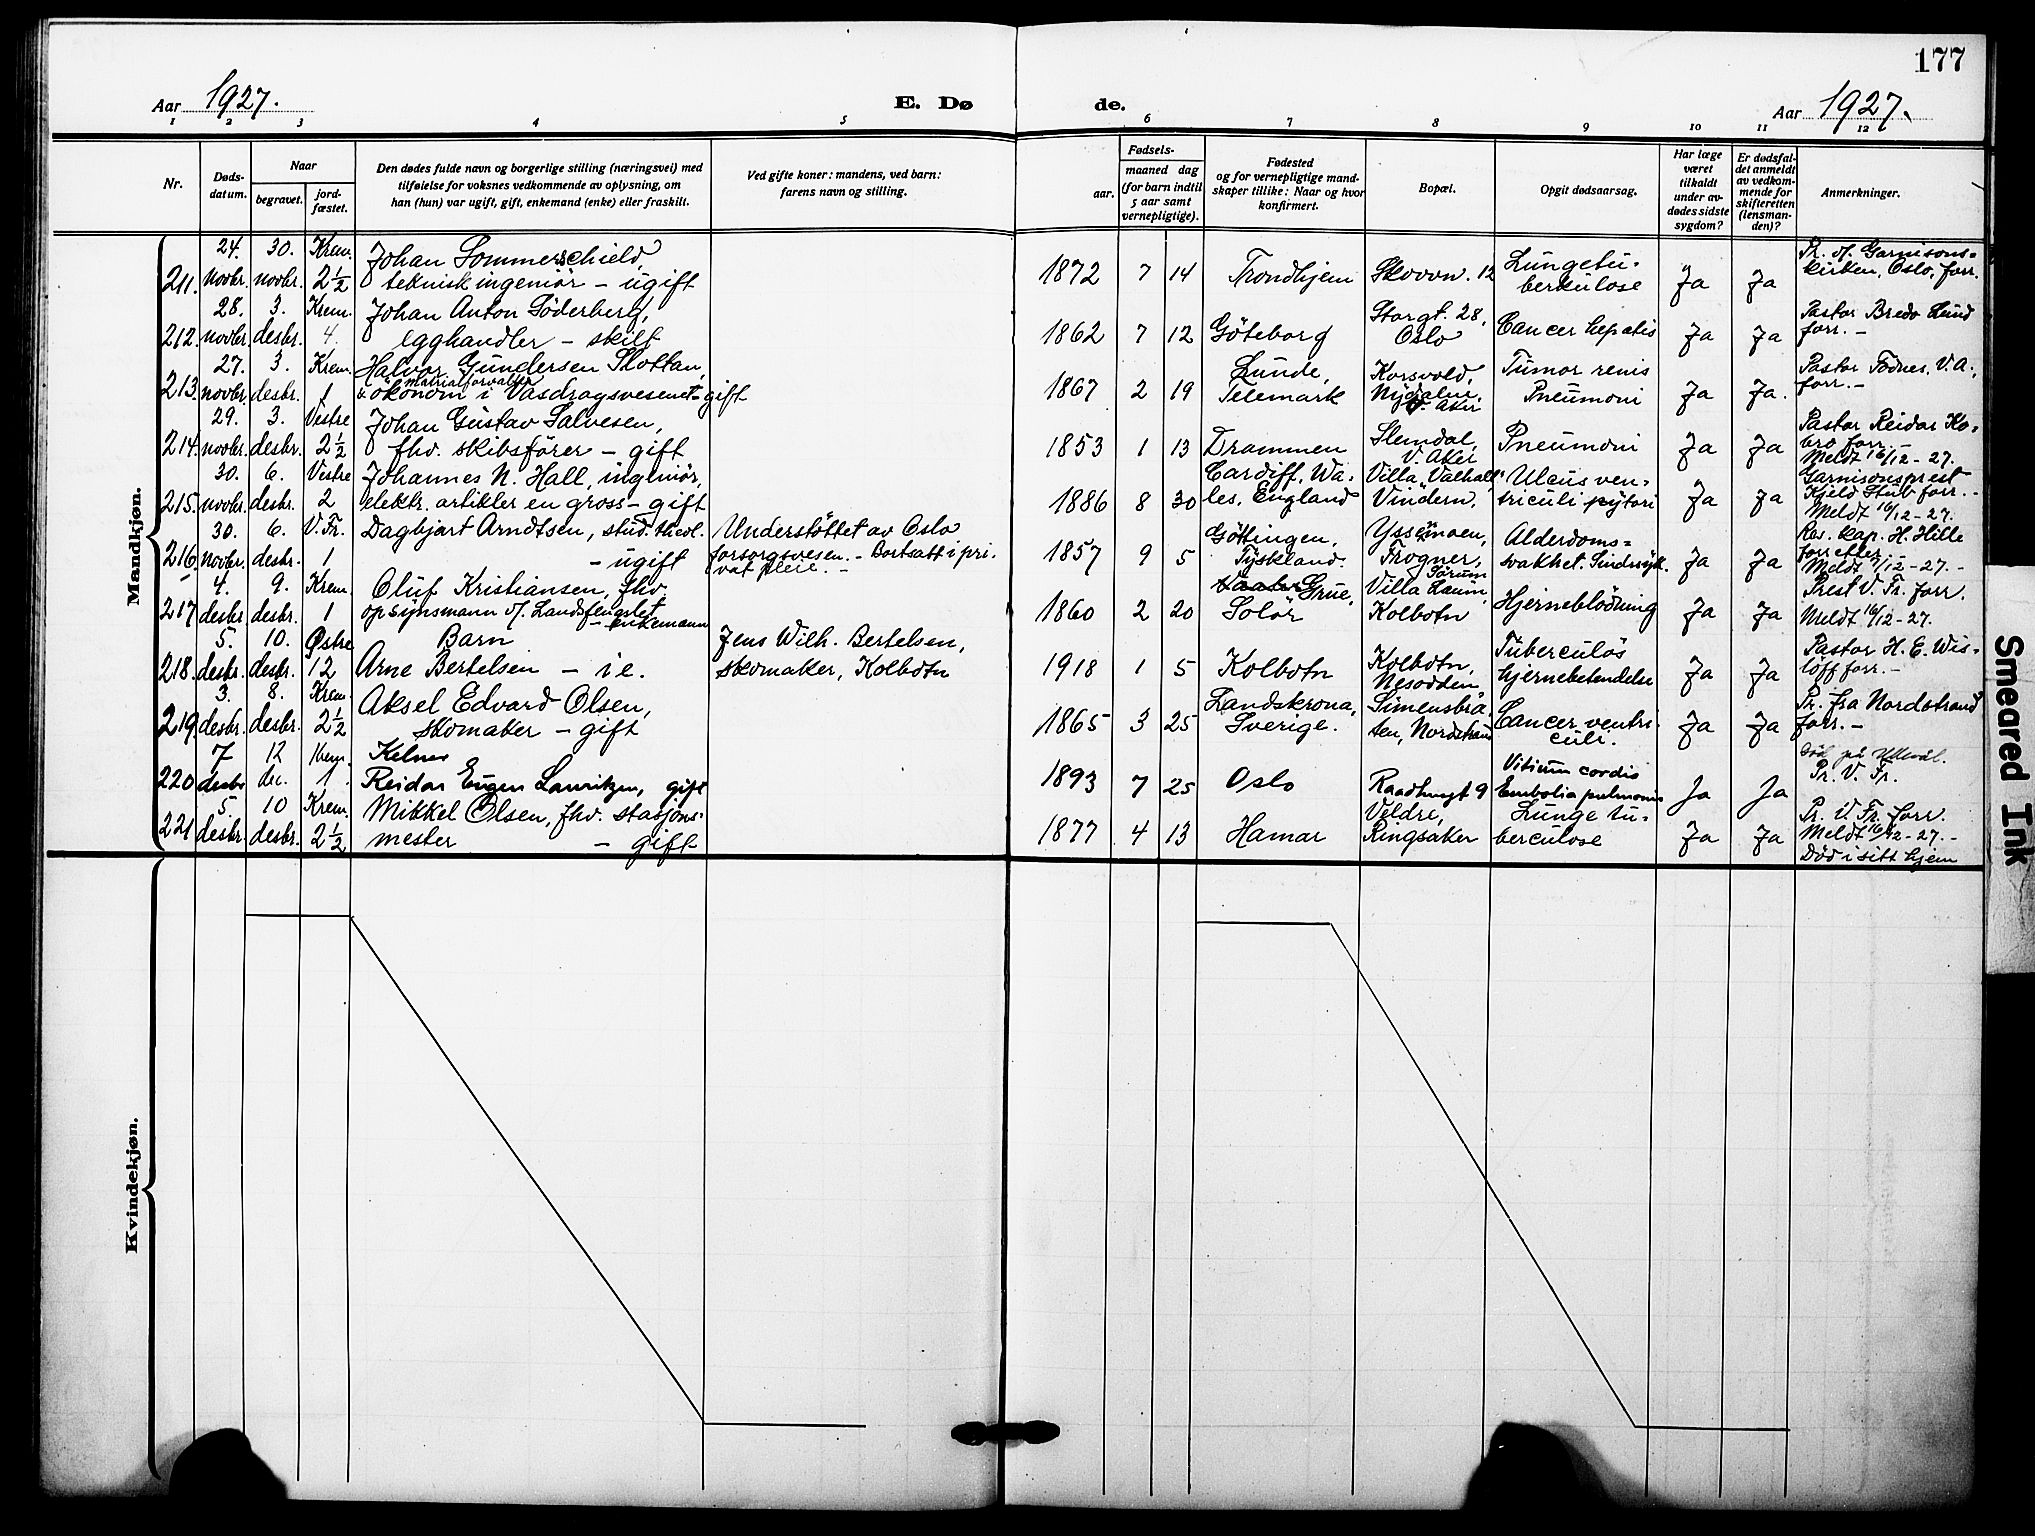 177
Aar 1927. E. Dø de. Aar 1927.
1 2 3 4 5 6 7 8 9 10 11 12
Nr.
Døds-
datum.
Naar
begravet.
jord-
fæstet.
Den dødes fulde navn og borgerlige stilling (næringsvei) med
tilføielse for voksnes vedkommende av oplysning, om
han (hun) var ugift, gift, enkemand (enke) eller fraskilt.
Ved gifte koner: mandens, ved barn:
farens navn og stilling.
Fødsels-
aar.
maaned dag
(for barn indtil
5 aar samt
vernepligtige).
Fødested
og for vernepligtige mand-
skaper tillike: Naar og hvor
konfirmert.
Bopæl.
Opgit dødsaarsag.
Har læge
været
tilkaldt
under av-
dødes sidste
sygdom?
Er dødsfal-
det anmeldt
av vedkom-
mende for
skifteretten
(lensman-
den)?
Anmerkninger.
Mandkjøn.
24. 30. Krem. Johan Sommerschield, Lungetu- Pr. v/. Garnisons-
211. novbr. novbr. 2½ teknisk ingeniør - ugift 1872 7 14 Trondhjem Skovvn. 12 berkulose Ja Ja kirken, Oslo, forr.
28. 3. Krem. Johan Anton Söderberg, Storgt. 28, Pastor Bredo Lund
212. novbr. desbr. 4. egghandler - skilt 1862 7 12 Göteborg Oslo Cancer hepatis Ja Ja forr. -
27. 3. Krem. Halvor Gundersen Slottan, Lunde, Korsvold, Tumor renis Pastor Födnes, V. A.,
matrialforvalter
213. novbr. desbr. 1 & økonom i Vasdragsvesenet - gift 1867 2 19 Telemark Nydalen, Pneumoni Ja Ja. forr. -
V. Aker
29. 3. Vestre Johan Gustav Salvesen, Pastor Reidar Ko-
214. novbr. desbr. 2½ fhv. skibsfører - gift 1853 1 13 Drammen Slemdal, Pneumoni Ja Ja bro forr. -
V. Aker Meldt 16/12-27.
30. 6. Vestre Johannes N. Hall, ingeniør, Cardiff, Wa- Villa "Valhall" Ulcus ven- Garnisonsprest
215. novbr. desbr. 2 elektr. artikler en gross - gift 1886 8 30 les, England Vindern, triculi pylori Ja Ja Kjeld Stub forr. -
Meldt 16/12-27.
30. 6. V. Fr. Dagbjart Arndtsen, stud. theol. Understöttet av Oslo Göttingen, Alderdoms- Res. kap. H. Hille
216. novbr. desbr. 1 - ugift forsorgsvesen. - Bortsatt i pri- 1857 9 5 Tyskland. Trogner, svakhet. Ja Ja forretter. -
vat pleie. - Sørum
4. 9. Krem. Oluf Kristiansen, fhv. Grue, Villa Prest V. Fr. forr.
217 desbr. desbr. 1 opsynsmann v/. Landsfengslet - enkemann 1860 2 20 Solör Kolbotn Hjerneblödning Ja Ja Meldt 16/12-27.
5. 10. Østre Barn Jens Wilh. Bertelsen, Tuberculös Pastor H. E. Wis-
218. desbr. desbr. 12 Arne Bertelsen - i e. skomaker, Kolbotn 1918 1 5 Kolbotn Kolbotn, hjernebetendelse Ja Ja löff forr. -
Nesodden
3. 8. Krem. Aksel Edvard Olsen, Landskrona, Simensbrå- Pr. fra Nordstrand
219 desbr. desbr. 2½ skomaker - gift 1865 3 25 Sverige. ten, Nordstrand Cancer ventri- Ja Ja forr. -
culi.
7 12 Krem. Kelner Vitium cordis
220 desbr dec. 1. Reidar Eugen Lauritzen, gift 1893 7 25 Oslo Raadhusgt 9 Embolia pulmonis Ja Ja Pr. V. Fr.
5. 10 Krem. Mikkel Olsen, fhv. stasjons- Veldre, Lunge tu- Pr. V. Fr. forr.
221 desbr. desbr. 2½ mester - gift 1877 4 13 Hamar Ringsaker berculose Ja Ja Meldt 16/12-27. -
Död i sitt hjem
Kvindekjøn.
Smeared Ink